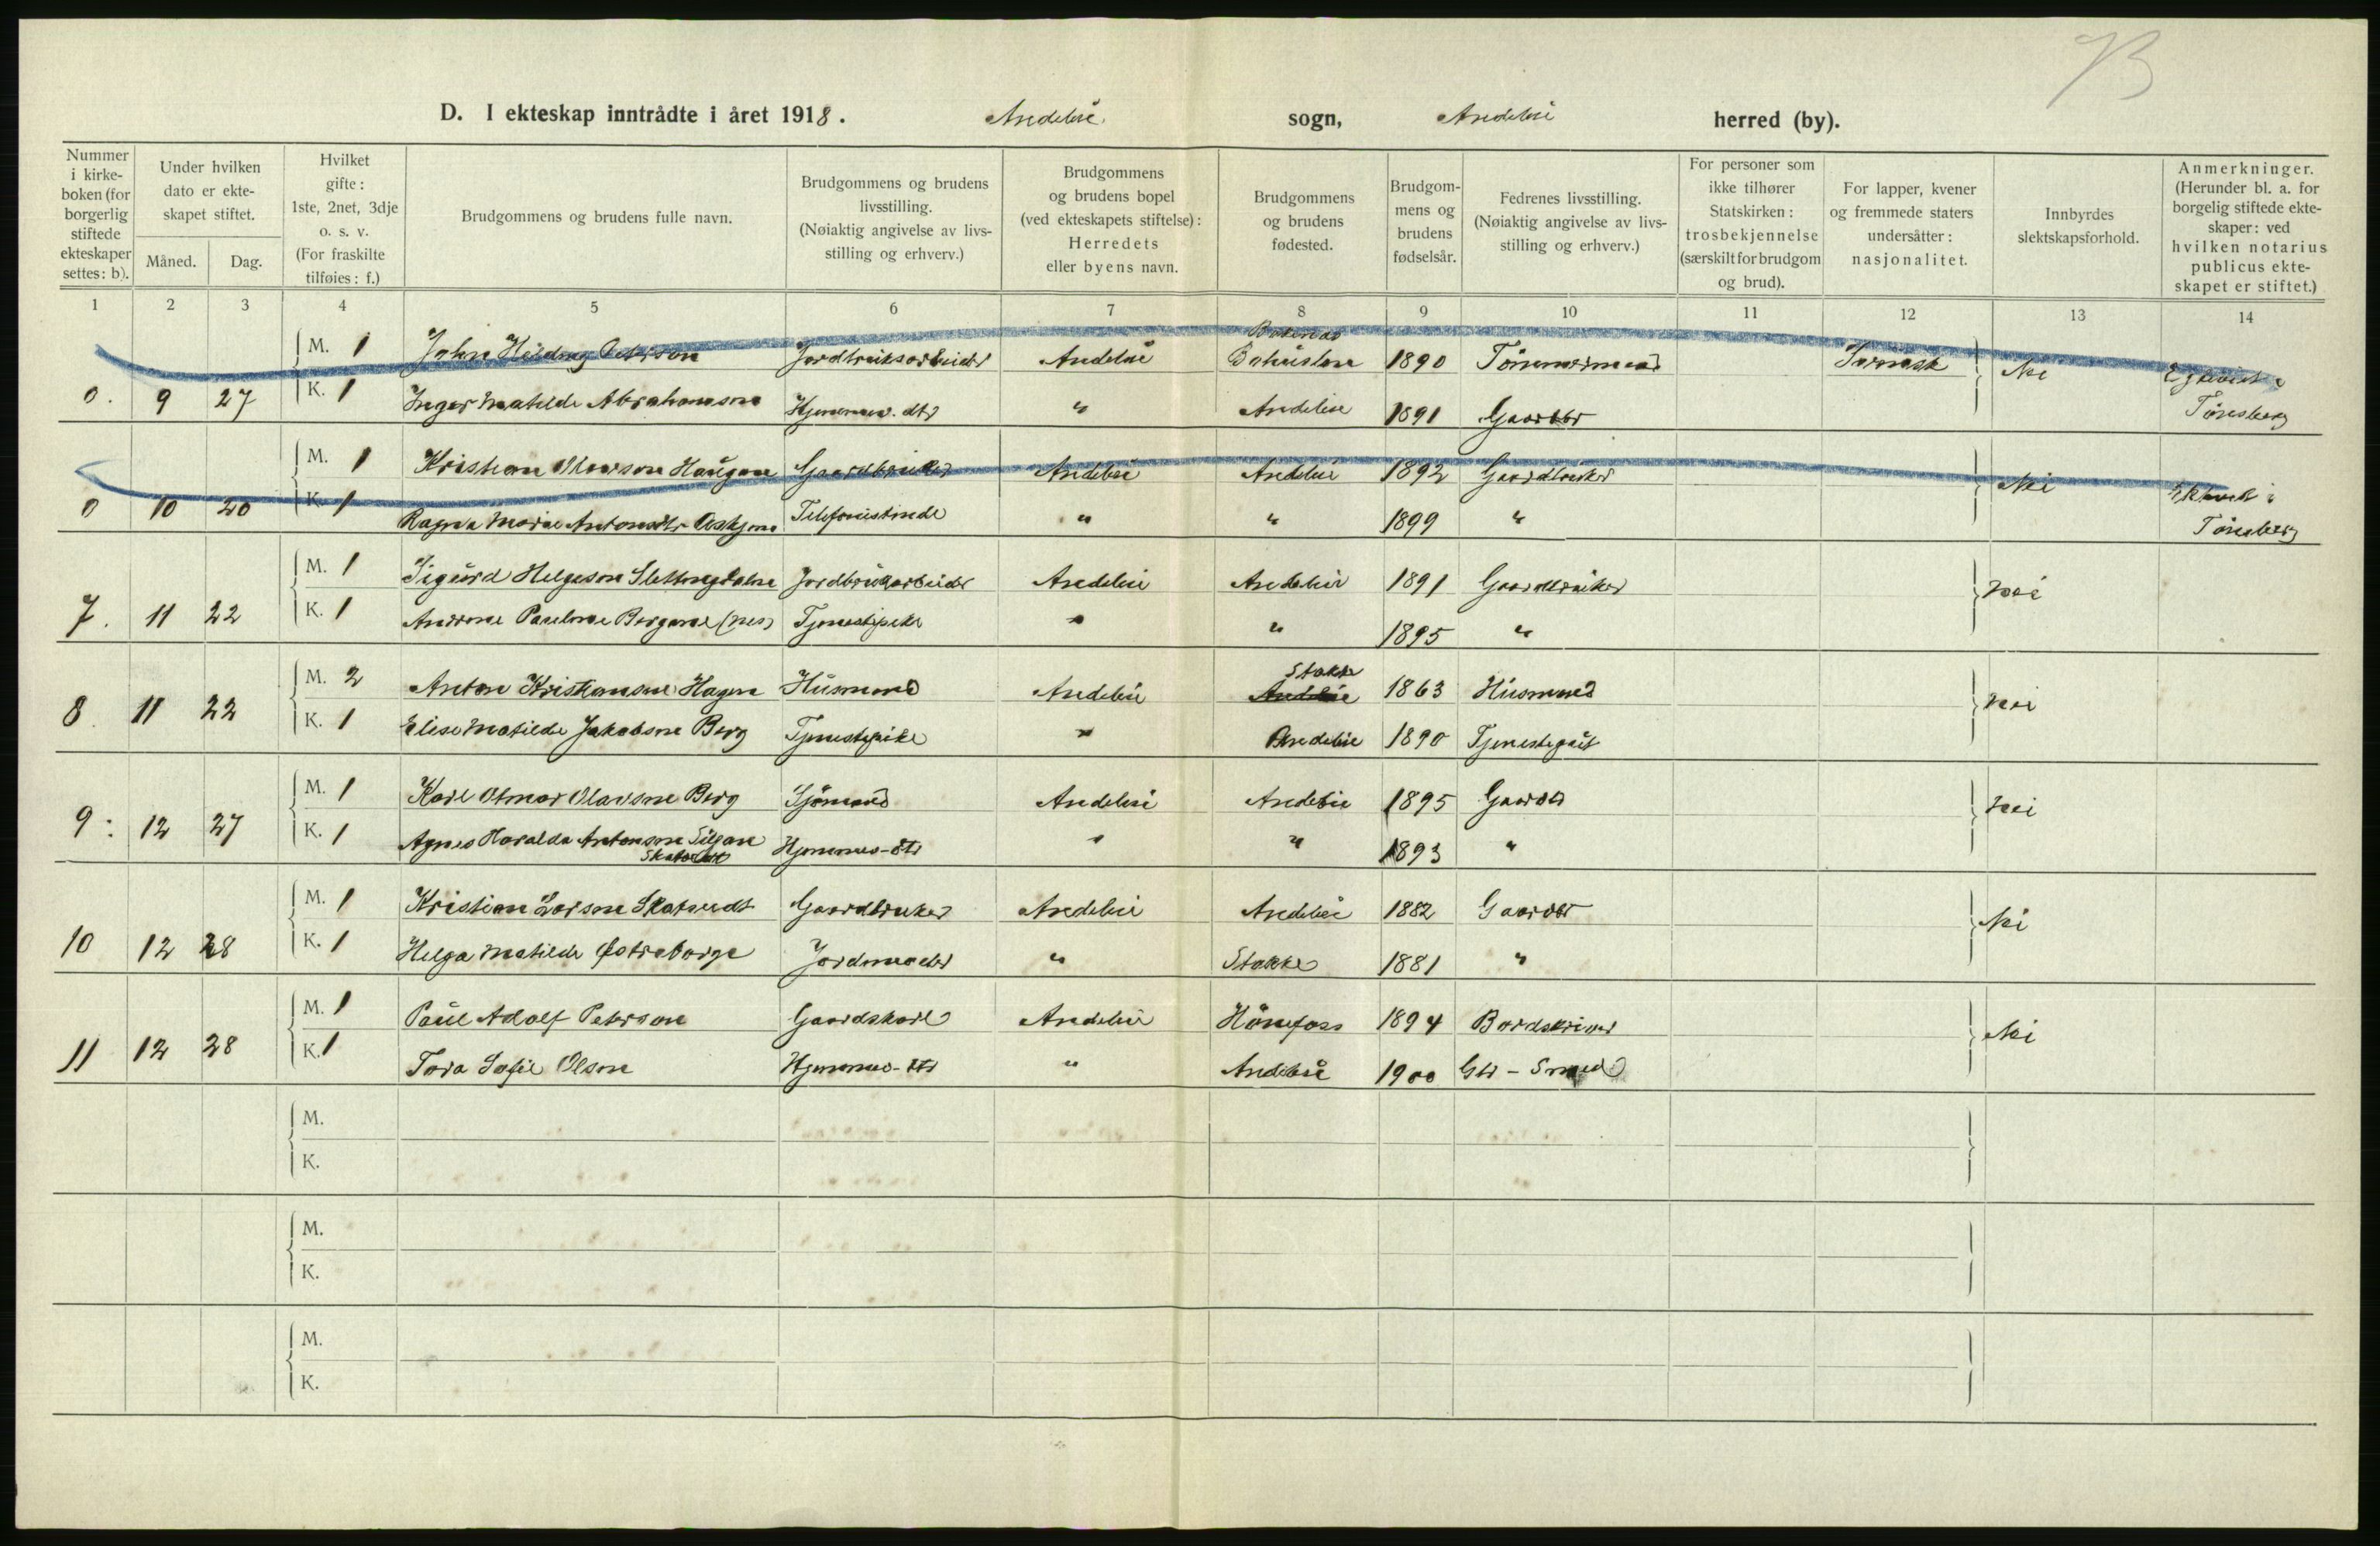 D. I ekteskap inntrådte i året 1918. Andebu sogn, Andebu herred (by).
Nummer i kirke-boken (for borgerlig stiftede ekteskaper settes: b).
Under hvilken dato er ekte-skapet stiftet.
Måned. Dag.
Hvilket gifte: 1ste, 2net, 3dje o. s. v. (For fraskilte tilføies: f.)
Brudgommens og brudens fulle navn.
Brudgommens og brudens livsstilling. (Nøiaktig angivelse av livs-stilling og erhverv.)
Brudgommens og brudens bopel (ved ekteskapets stiftelse): Herredets eller byens navn.
Brudgommens og brudens fødested.
Brudgom-mens og brudens fødselsår.
Fedrenes livsstilling. (Nøiaktig angivelse av livs-stilling og erhverv.)
For personer som ikke tilhører Statskirken: trosbekjennelse (særskilt for brudgom og brud).
For lapper, kvener og fremmede staters undersåtter: nasjonalitet.
Innbyrdes slektskapsforhold.
Anmerkninger. (Herunder bl. a. for borgelig stiftede ekte-skaper: ved hvilken notarius publicus ekte-skapet er stiftet.)
1 2 3 4 5 6 7 8 9 10 11 12 13 14
M. 1 John Petersen Jordbruksarbeider Andebu 1890 Tömmermand Nei
0. 9 27 K. 1 Inger Matilde Abrahamsen Hjemmev. dtr " Andebu 1891 Gaardbr Tönsberg
M. 1 Kristian Olavsen Haugan Gaardbruker Andebu Andebu 1892 Gaardbruker Nei
0 10 20 K. 1 Ragna Marie Antonsdtr Askjem Telefonistinde " " 1899 " Tönsberg
M. 1 Sigurd Helgesen Jordbrukarbeider Andebu Andebu 1891 Gaardbruker nei
7. 11 22 K. 1 Bergane (nes) Tjenestepike " " 1895 "
M. 2 Anton Kristiansen Hagen Husmand Andebu Stokke Andebu 1863 Husmand nei
8. 11 22 K. 1 Elise Matilde Jakobsen Berg Tjenestepike " Andebu 1890 Tjenestegut
M. 1 Karl Otmar Olavsen Berg Sjömand Andebu Andebu 1895 Gaardbr nei
9: 12 27 K. 1 Agnes Haralda Antonsen Hjemmev-dtr " " 1893 "
M. 1 Kristian Larsen Skatvedt Gaardbruker Andebu Andebu 1882 Gaardbr Nei
10 12 28 K. 1 Helga Matilde Østreborge Jordmoder " Stokke 1881 "
M. 1 Paul Adolf Peterson Gaardskarl Andebu Hönefoss 1894 Bordskriver Nei
11 12 28 K. 1 Tora Sofie Olsen Hjemmev-dtr " Andebu 1900 Gbr - Smed
M.
K.
M.
K.
M.
K.